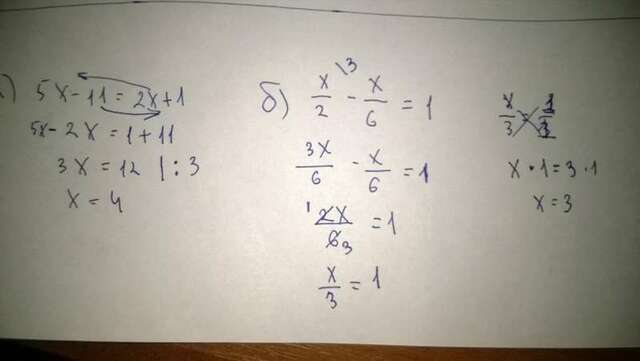 ) 5x-11=2x+1
5x-2x=1+11
3x=12 |:3
x=4
б) x/2 \3 - x/6 = 1
3x/6 - x/6 = 1
1 2x/6 3 = 1
x/3 = 1
x/3 = 1/3
x·1=3·1
x=3